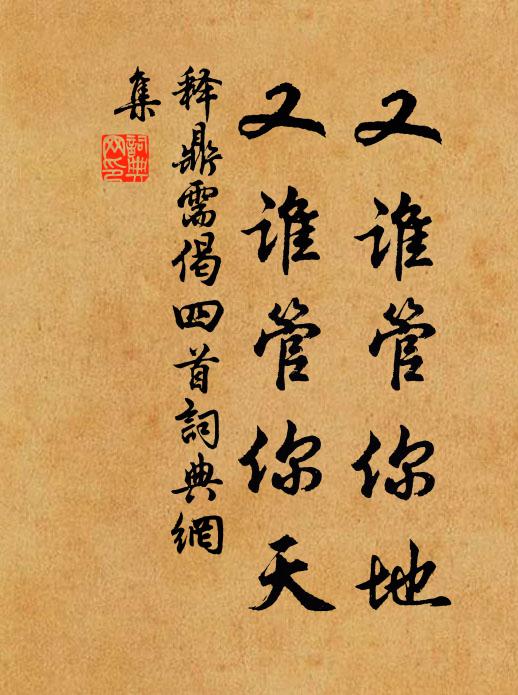 又谁管你地
又谁管你天
释鼎需偈四首詞典網
集
詞典
网印